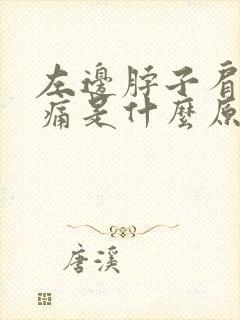 左邊脖子肩
痛是什麼原
唐溪